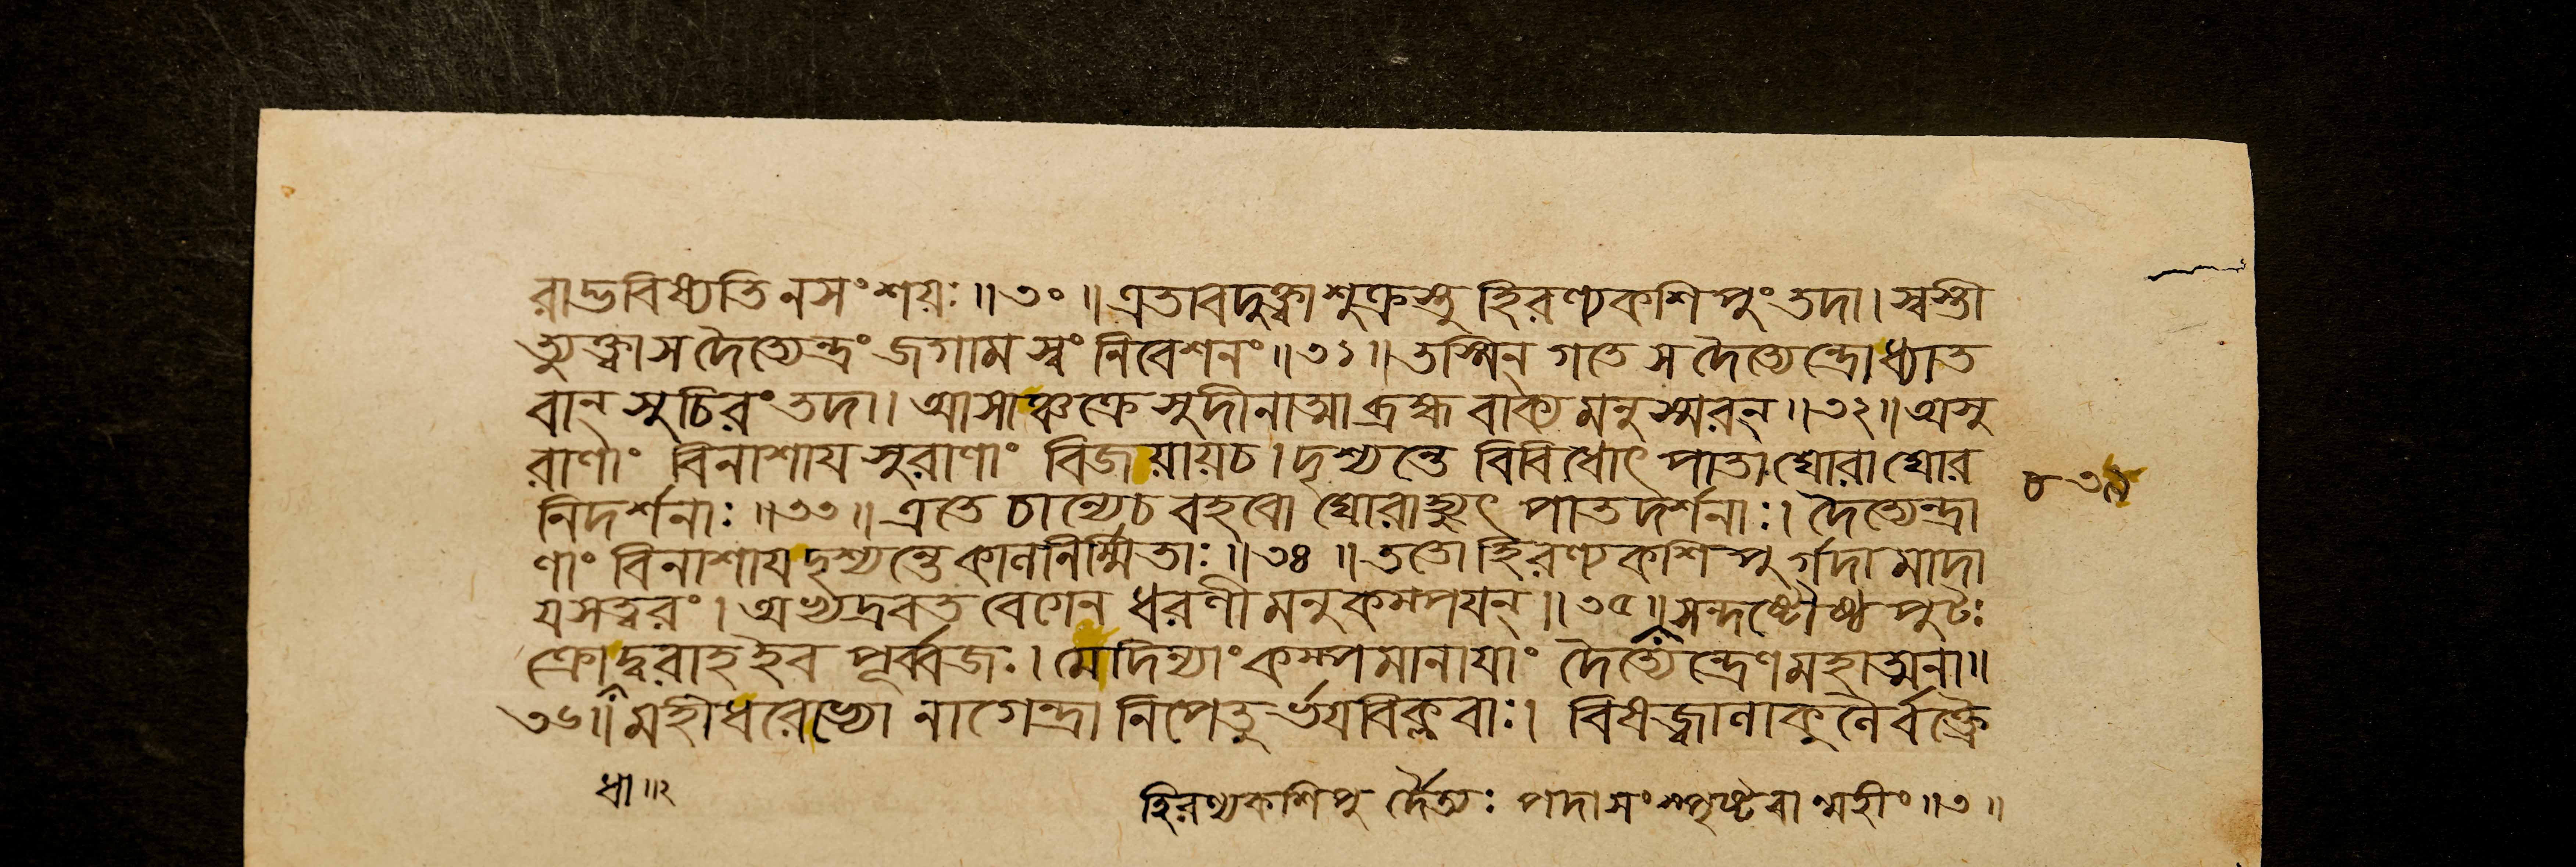 রাদ্ভবিষ্যতি নসংশয়ঃ॥৩০॥এতাবদুক্ত্বাশুক্রস্তু হিরণ্যকশিপুং তদা।স্বস্তী
ত্যুক্ত্বাস দৈত্যেন্দ্রং জগাম স্বং নিবেশনং॥৩১॥তস্মিন্ গতে স দৈত্যেন্দ্রোধ্যাত
বান্ সুচিরং তদা।আসাঞ্চক্রে সুদীনাত্মাব্রহ্ম বাক্য মনুস্মরন্॥৩২॥অসু
রাণাং বিনাশায সুরাণাং বিজয়ায়চ।দৃশ্যন্তে বিবিধোৎ পাতাঘোরাঘোর
নিদর্শনাঃ॥৩৩॥এতে চান্যেচ বহবো ঘোরাহ্যুৎ পাতদর্শনাঃ।দৈত্যেন্দ্রা
ণাং বিনাশায দৃশ্যন্তে কালনির্ম্মিতাঃ॥৩৪॥ততো হিরণ্যকশিপু র্গদামাদা
যসত্বরং।অভ্যদ্রবত বেগেন ধরণীমনুকম্পযন্॥৩৫॥সন্দষ্টৌষ্ঠ পুটঃ
ক্রোদ্ধরাহ ইব পূর্ব্বজঃ।মেদিন্যাং কম্পমানাযাং দৈত্যেন্দ্রেণমহাত্মনা॥
৩৬॥মহীধরেভ্যো নাগেন্দ্রা নিপেতু র্ভযবিক্লবাঃ। বিষজ্বালাকুলৈর্বক্ত্রৈ
ধা॥২
হিরণ্যকশিপু র্দৈত্যঃ পদাসংস্পৃষ্টবান্মহীং॥৩॥